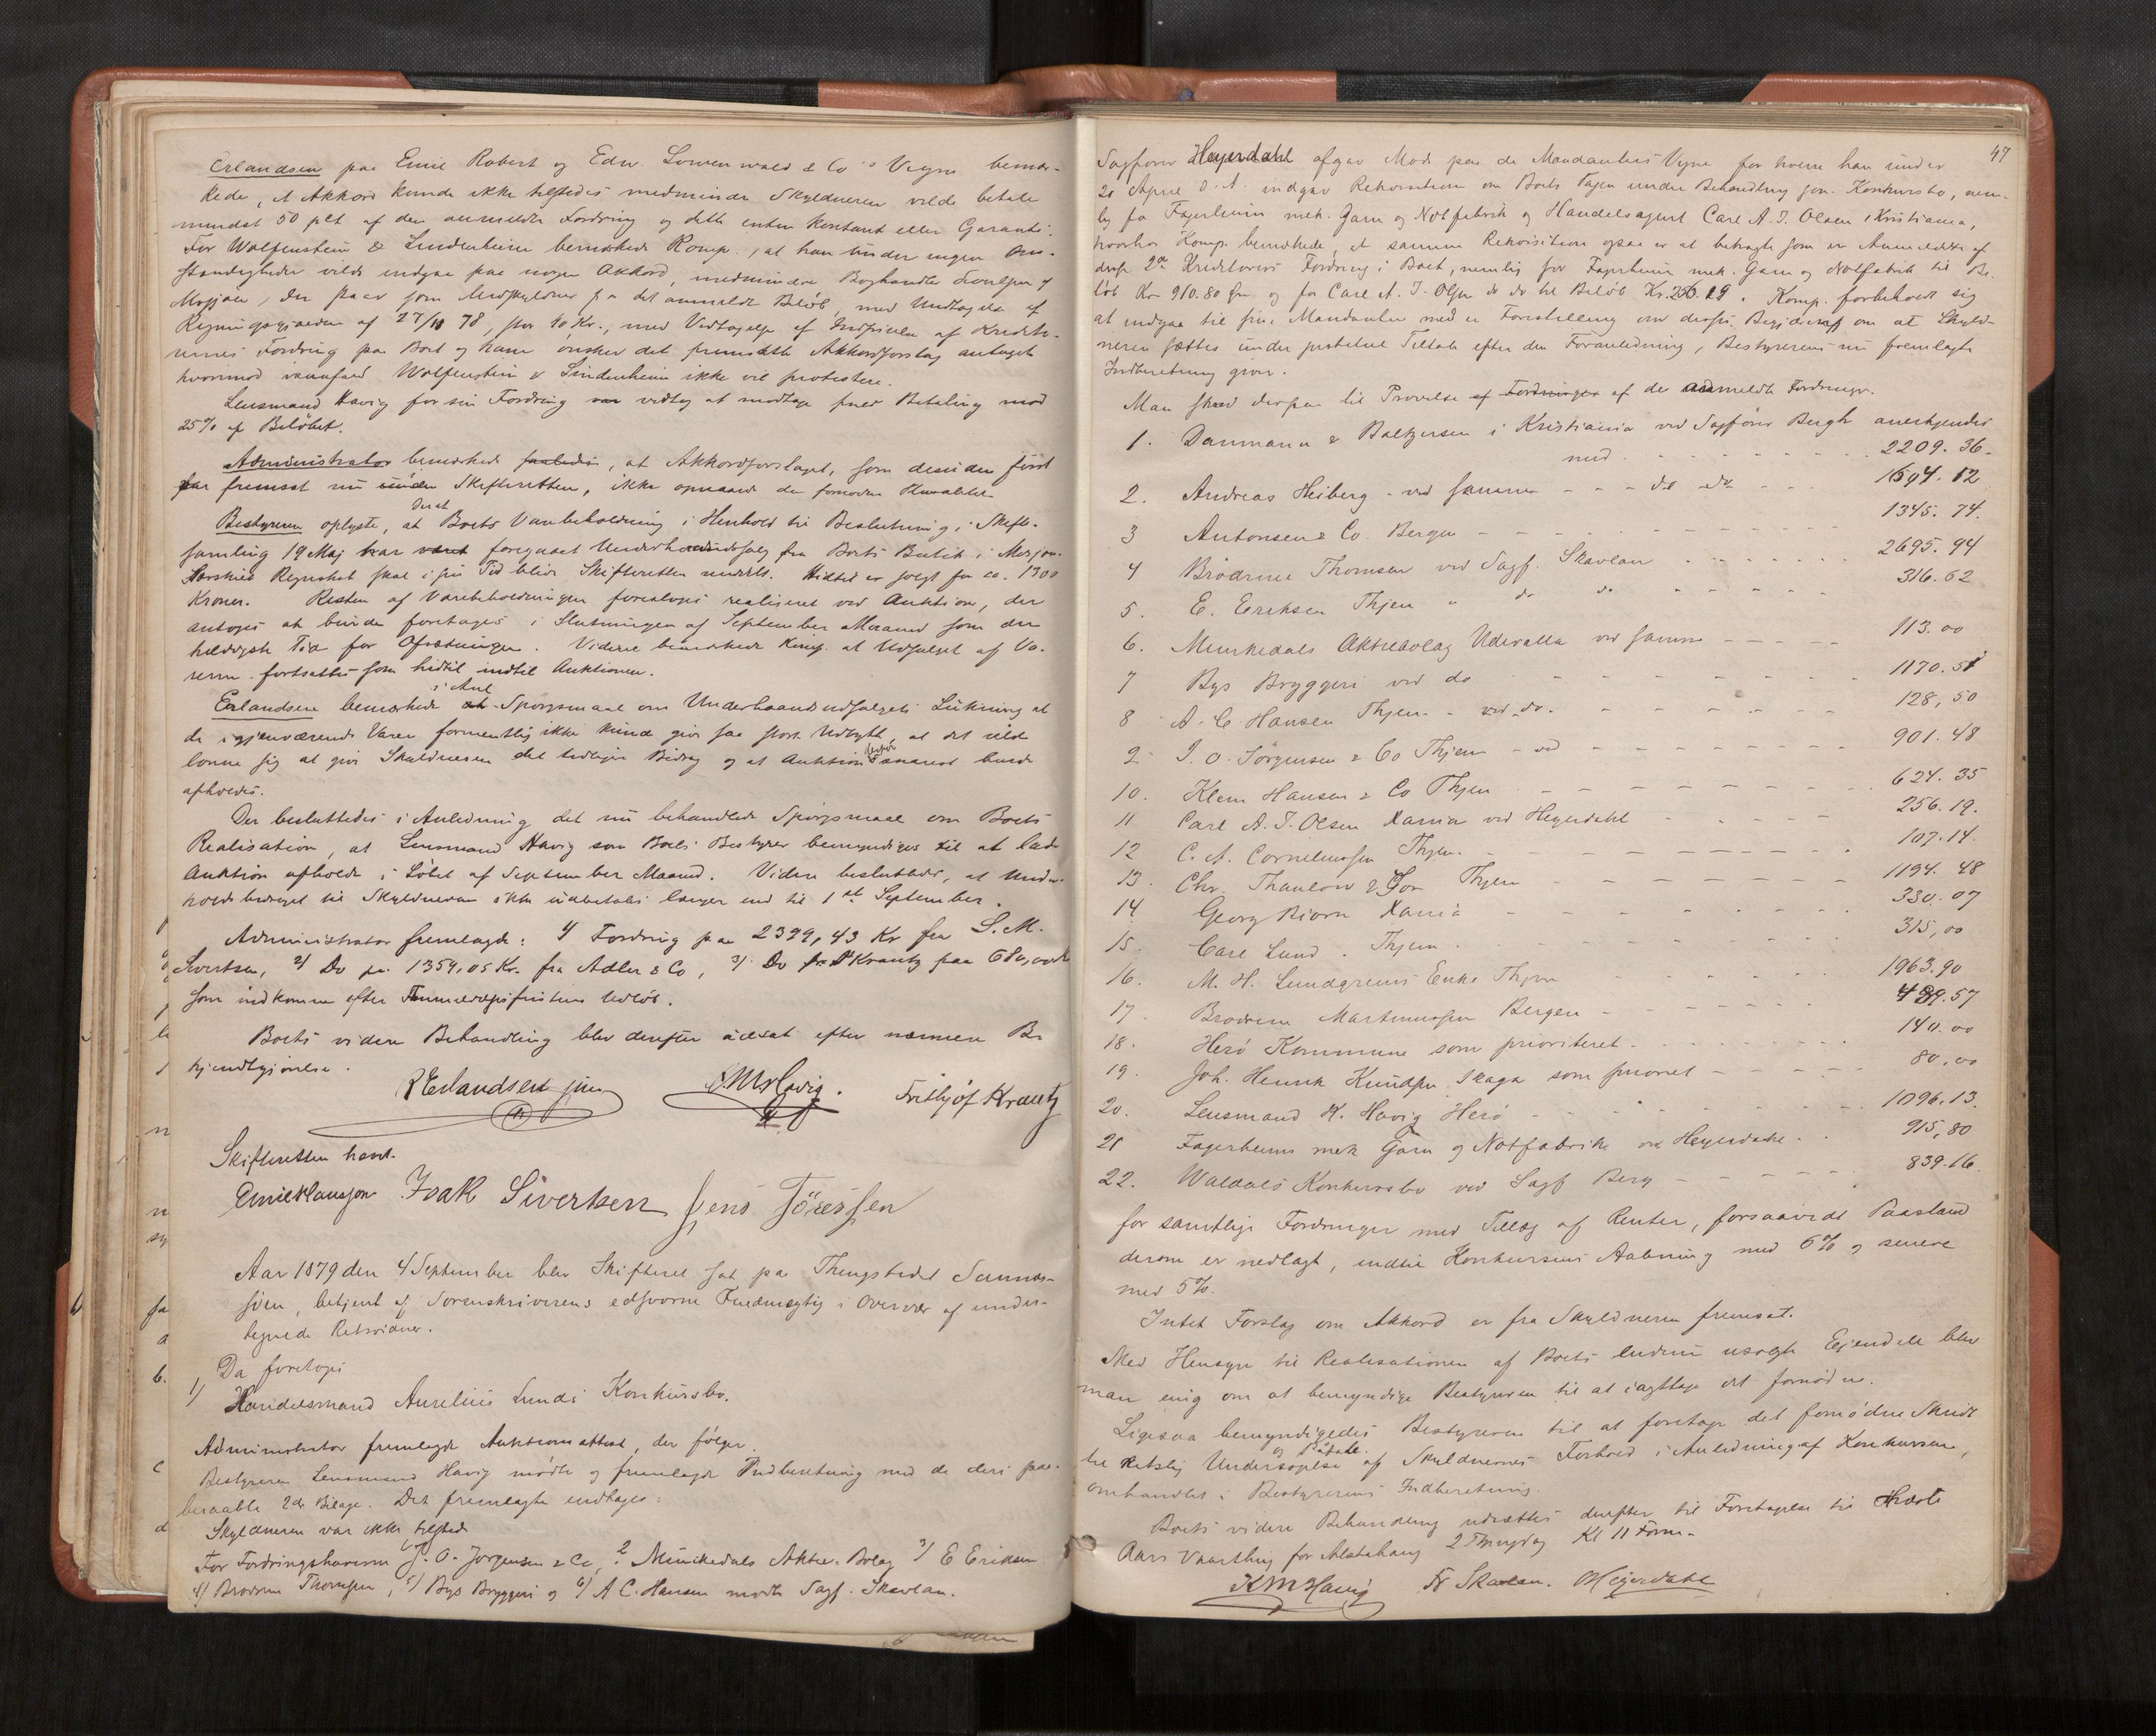 Erlandsen paa Emil Robert og Edw. Lowenwald & Co's Vegne bemær-
kede, at Akkord kunde ikke tilstedes medmindre Skyldneren vilde betale
mindst 50 pCt af den anmeldte Fordring og dette enten kontant eller Garanti.
For Wolfenstein & Lindenheim bemærkede Komp., at han under ingen Om-
stændigheder vilde indgaa paa nogen Akkord, medmindre Boghandler
Mosjøen, der staar som Medskyldner for det anmeldte Beløb, med Undtagelse af
27/11 78, stor 40 Kr., med Vedtagelse af Indfrielse af Kredito-
rernes Fordring paa Boet og ham ønsker det fremsatte Akkordforslag antaget
hvorimod Wolfenstein & Lindenheim ikke vil protestere.
Lensmand Havig for sin Fordring vedtog at modtage fuld Betaling med
25% af Beløbet.
Administrator bemærkede saaledes, at Akkordforslaget, som desuden først
var fremsat nu under Skifteretten, ikke opnaaede den fornødne Pluralitet.
der at
Bestyreren oplyste, at Boets Varebeholdning i Henhold til Beslutning i Skifte-
samling 19 Maj har været foregaaet Underhaandssalg fra Boets Butik i Mosjøen.
Særskilt Regnskab skal i sin Tid blive Skifteretten meddelt. Hidtil er solgt for ca. 1300
Kroner. Resten af Varebeholdningen foresloges realiseret ved Auktion, der
antoges at burde foretages i Slutningen af September Maaned som den
heldigste Tid for Afsætningen. Videre bemærkede Komp. at Udsalget af Va-
rerne fortsattes som hidtil indtil Auktionen.
i Anl
Erlandsen bemærkede at Spørgsmaal om Underhaandsudsalgets Lukning at
de igjenværende Varer formentlig ikke kunde give saa stort Udbytte, at det vilde
derfor
lønne sig at give Skyldneren det tidligere Bidrag og at Auktion snarest burde
afholdes.
Der besluttedes i Anledning det nu behandlede Spørgsmaal om Boets
Realisation, at Lensmand Havig som Boets Bestyrer bemyndiges til at lade
Auktion afholde i Løbet af September Maaned. Videre besluttedes, at Under-
holdsbidraget til Skyldneren ikke udbetales længer end til 1st September.
Administrator fremlagde: 1) Fordring paa 2399,43 Kr fra S. M.
Sivertsen, 2) Do paa 1359,05 Kr. fra Adler & Co, 3) Do fra Krantz paa
som indkomne efter Anmeldelsesfristens Udløb.
Boets videre Behandling blev derefter udsat efter nærmere Be-
kjendtgjørelse.
R Erlandsen jun K M Havig. Frithjof Krantz
Skifteretten hævet.
Emil Hansson Isak Sivertsen Jens Tøressen
Aar 1879 den 4 September blev Skifteret sat paa Thingstedet Sannes-
sjøen, betjent af Sorenskriverens edsvorne Fuldmægtig i Overvær af under-
tegnede Retsvidner.
Da foretoges
1) Handelsmand Aurelius Lunds Konkursbo.
Administrator fremlagde Auktionsattest, der følger.
Bestyreren Lensmand Havig mødte og fremlagde Indberetning med de deri paa-
beraabte 2de Bilage. Det fremlagte indtages:
Skyldneren var ikke tilstede
For Fordringshaverne J. O. Jørgensen & Co, 2 Munkedals Aktie-Bolag 3) E Eriksen
4) Brødrene Thomsen, 5) Bys Bryggeri og 6) A C. Hansen mødte Sagf. Skavlan.
47
Sagfører Heyerdahl afgav Møde paa de Mandanters Vegne for hvem han under
21 April d. A. indgav Rekvisition om Boets Tagen under Behandling som Konkursbo, nem-
lig for Fagerheims mek. Garn og Notfabrik og Handelsagent Carl A. I. Olsen i Kristiania,
hvorhos Komp. bemærkede, at samme Rekvisition ogsaa er at betragte som en Anmeldelse af
disse 2de Kreditorers Fordring i Boet, nemlig for Fagerheims mek. Garn og Notfabrik til Be-
løb Kr 910.80 Øre og for Carl A. I. Olsen do do til Beløb Kr. 256.19. Komp. forbeholdt sig
at indgaa til sine Mandanter med en Forestilling om disses Begjæring om at Skyld-
neren sættes under justitiel Tiltale efter den Foranledning, Bestyrerens nu fremlagte
Indberetning giver.
Man skred derpaa til Prøvelse af Fordringer af de anmeldte Fordringer.
1. Danmann & Baltzersen i Kristiania ved Sagfører Bergh anerkjendes
med 2209.36.
2. Andreas Heiberg - ved samme - do do 1504.12
3 Antonsen & Co. Bergen 1345.74.
4 Brødrene Thomsen ved Sagf. Skavlan 2695.94
5. E. Eriksen Thjem " do do 316.62
6. Munkedals Aktiebolag Udevalla ved samme 113.00
7 Bys Bryggeri ved do 1170.51
8 A. C. Hansen Thjem - ved do. 128,50
9 I. O. Jørgensen & Co Thjem - ved 901.48
10. Klem Hansen & Co Thjem 624.35
11 Carl A. I. Olsen Xania ved Heyerdahl 256.19.
12 C. A. Corneliussen Thjem. 107.14.
13. Chr. Thaulow & Søn Thjem 1194.48
14 Georg Bjørn Xania 330.07
15. Carl Lund. Thjem. 315,00
16. M. H. Lundgrens Enke Thjem 1963.90
17. Brødrene Martinussen Bergen 439.57
18. Herø Kommune som prioriteret 140.00
19. Joh. Henrik Knudsen Skaga som prioriteret 80.00
20. Lensmand K. Havig Herø 1096.13.
21 Fagerheims mek Garn og Notfabrik ved Heyerdahl 915,80
22. Waldals Konkursbo ved Sagf Berg 839.16.
for samtlige Fordringer med Tillæg af Renter, forsaavidt Paastand
derom er nedlagt, indtil Konkursens Aabning med 6% og senere
med 5%.
Intet Forslag om Akkord er fra Skyldneren fremsat.
Med Hensyn til Realisationen af Boets endnu usolgte Ejendele blev
man enig om at bemyndige Bestyreren til at iagttage det fornødne.
Ligesaa bemyndigedes Bestyreren til at foretage det fornødne Skridt
og Paatale
til retslig Undersøgelse af Skyldnernes Forhold i Anledning af Konkursen,
omhandlet i Bestyrerens Indberetning.
Boets videre Behandling udsættes derefter til Foretagelse til næste
Aars Vaarthing for Alstahaug 2 Thingdag Kl 11 Form.
K M Havig Fr Skavlan. O Heyerdahl